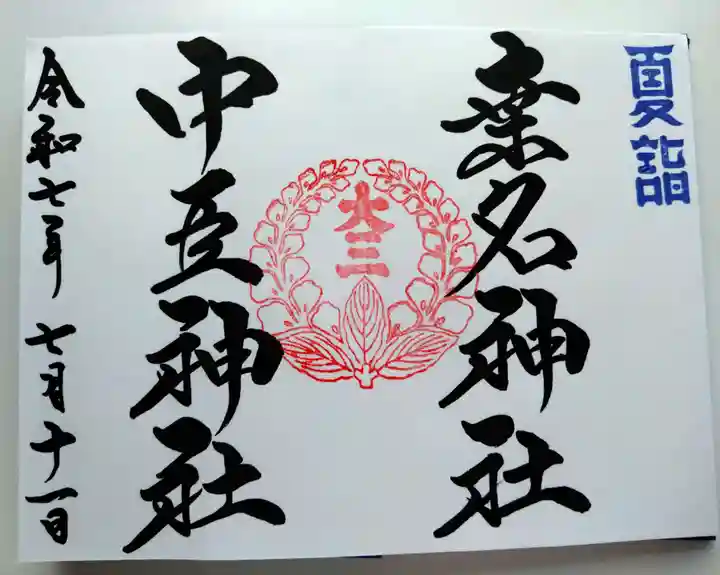 夏詣
桑名神社
大三
中臣神社
令和七年七月十一日